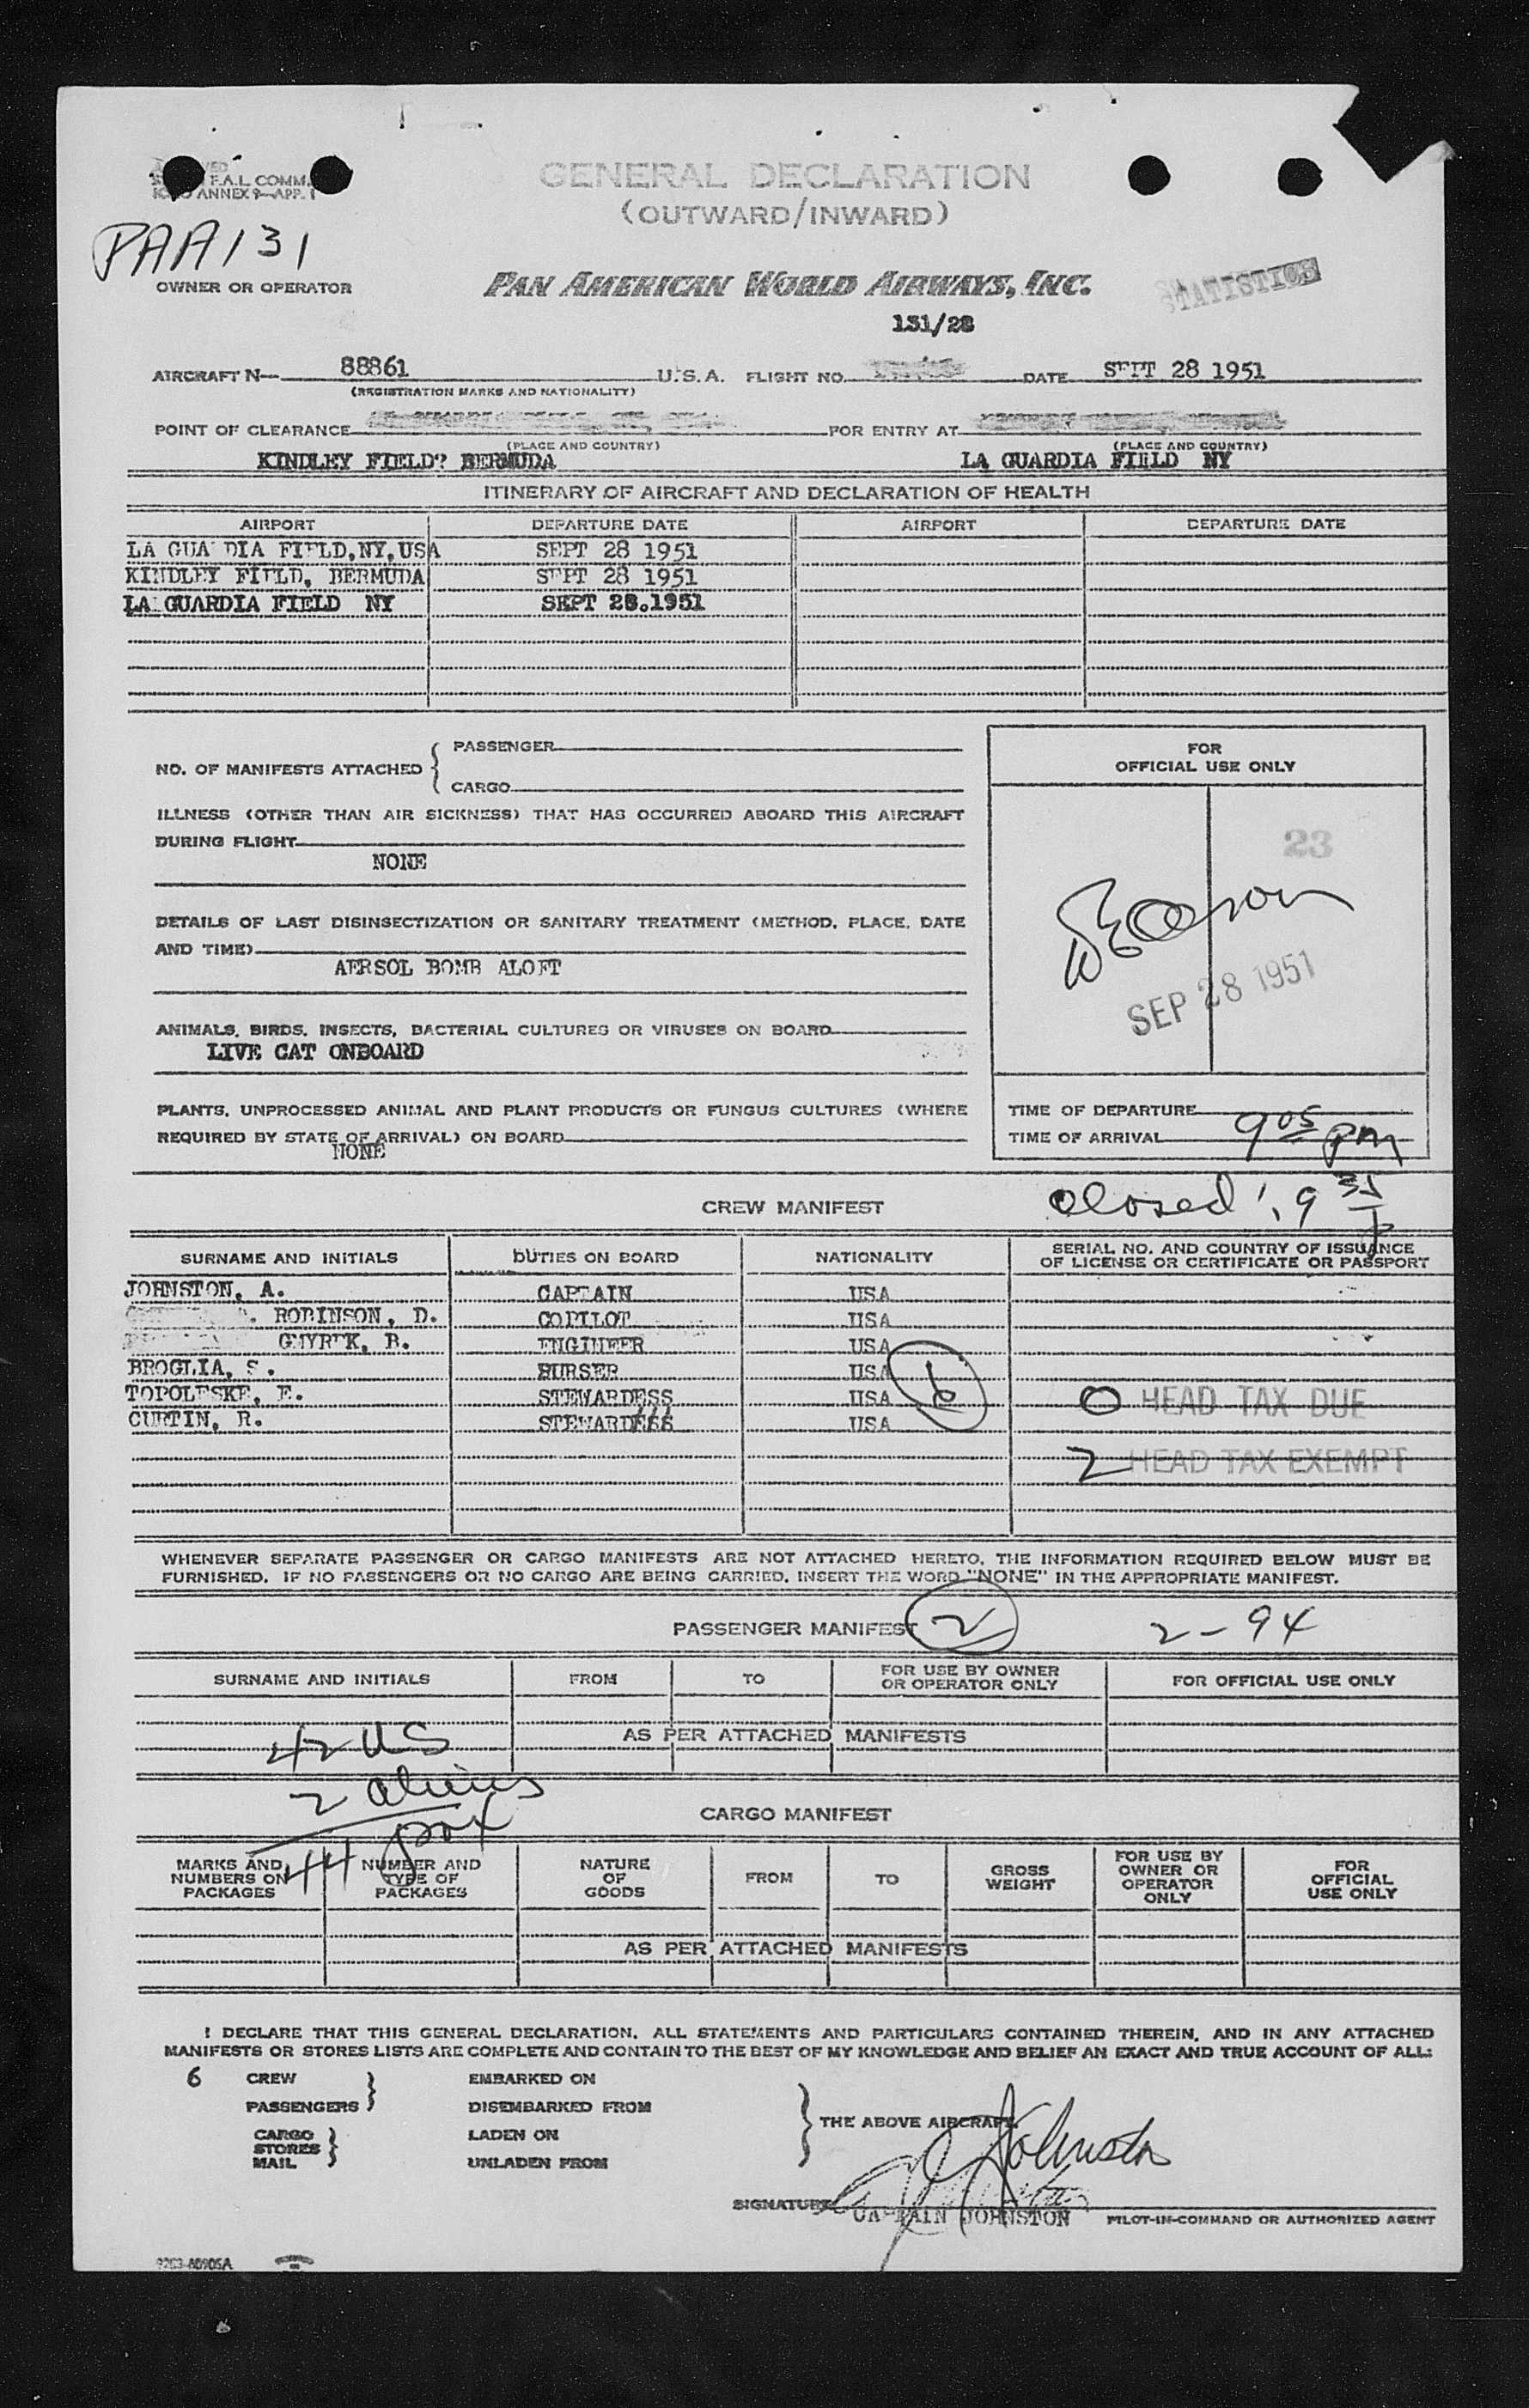 F.A.L. COMM.
ANNEX 9—APP. 1
GENERAL DECLARATION
(OUTWARD/INWARD)
PAA131
OWNER OR OPERATOR
PAN AMERICAN WORLD AIRWAYS, INC.
STATISTICS
131/28
AIRCRAFT N— 88861 U.S.A. FLIGHT NO. DATE SEPT 28 1951
(REGISTRATION MARKS AND NATIONALITY)
POINT OF CLEARANCE FOR ENTRY AT
(PLACE AND COUNTRY) (PLACE AND COUNTRY)
KINDLEY FIELD? BERMUDA LA GUARDIA FIELD NY
ITINERARY OF AIRCRAFT AND DECLARATION OF HEALTH
AIRPORT DEPARTURE DATE AIRPORT DEPARTURE DATE
LA GUA DIA FIELD,NY,USA SEPT 28 1951
KINDLEY FIELD, BERMUDA SEPT 28 1951
LA GUARDIA FIELD NY SEPT 28.1951
NO. OF MANIFESTS ATTACHED { PASSENGER
CARGO
FOR
OFFICIAL USE ONLY
ILLNESS (OTHER THAN AIR SICKNESS) THAT HAS OCCURRED ABOARD THIS AIRCRAFT
DURING FLIGHT
NONE
23
DETAILS OF LAST DISINSECTIZATION OR SANITARY TREATMENT (METHOD, PLACE, DATE
AND TIME)
AERSOL BOMB ALOFT
SEP 28 1951
ANIMALS, BIRDS, INSECTS, BACTERIAL CULTURES OR VIRUSES ON BOARD
LIVE CAT ONBOARD
PLANTS, UNPROCESSED ANIMAL AND PLANT PRODUCTS OR FUNGUS CULTURES (WHERE
REQUIRED BY STATE OF ARRIVAL) ON BOARD
NONE
TIME OF DEPARTURE
TIME OF ARRIVAL 9 05 pm
CREW MANIFEST
closed 9 35 p
SURNAME AND INITIALS DUTIES ON BOARD NATIONALITY SERIAL NO. AND COUNTRY OF ISSUANCE
OF LICENSE OR CERTIFICATE OR PASSPORT
JOHNSTON, A. CAPTAIN USA
ROBINSON, D. COPILOT USA
GMYREK, B. ENGINEER USA
BROGLIA, S. PURSER USA
TOPOLESKE, E. STEWARDESS USA 6 0 HEAD TAX DUE
CURTIN, R. STEWARDESS USA
2 HEAD TAX EXEMPT
WHENEVER SEPARATE PASSENGER OR CARGO MANIFESTS ARE NOT ATTACHED HERETO, THE INFORMATION REQUIRED BELOW MUST BE
FURNISHED. IF NO PASSENGERS OR NO CARGO ARE BEING CARRIED, INSERT THE WORD "NONE" IN THE APPROPRIATE MANIFEST.
PASSENGER MANIFEST 2 2-94
SURNAME AND INITIALS FROM TO FOR USE BY OWNER
OR OPERATOR ONLY FOR OFFICIAL USE ONLY
AS PER ATTACHED MANIFESTS
42 US
2 aliens
44 pax
CARGO MANIFEST
MARKS AND
NUMBERS ON
PACKAGES NUMBER AND
TYPE OF
PACKAGES NATURE
OF
GOODS FROM TO GROSS
WEIGHT FOR USE BY
OWNER OR
OPERATOR
ONLY FOR
OFFICIAL
USE ONLY
AS PER ATTACHED MANIFESTS
I DECLARE THAT THIS GENERAL DECLARATION, ALL STATEMENTS AND PARTICULARS CONTAINED THEREIN, AND IN ANY ATTACHED
MANIFESTS OR STORES LISTS ARE COMPLETE AND CONTAIN TO THE BEST OF MY KNOWLEDGE AND BELIEF AN EXACT AND TRUE ACCOUNT OF ALL:
6 CREW EMBARKED ON
PASSENGERS DISEMBARKED FROM
THE ABOVE AIRCRAFT.
CARGO LADEN ON
STORES
MAIL UNLADEN FROM
Johnston
SIGNATURE CAPTAIN JOHNSTON PILOT-IN-COMMAND OR AUTHORIZED AGENT